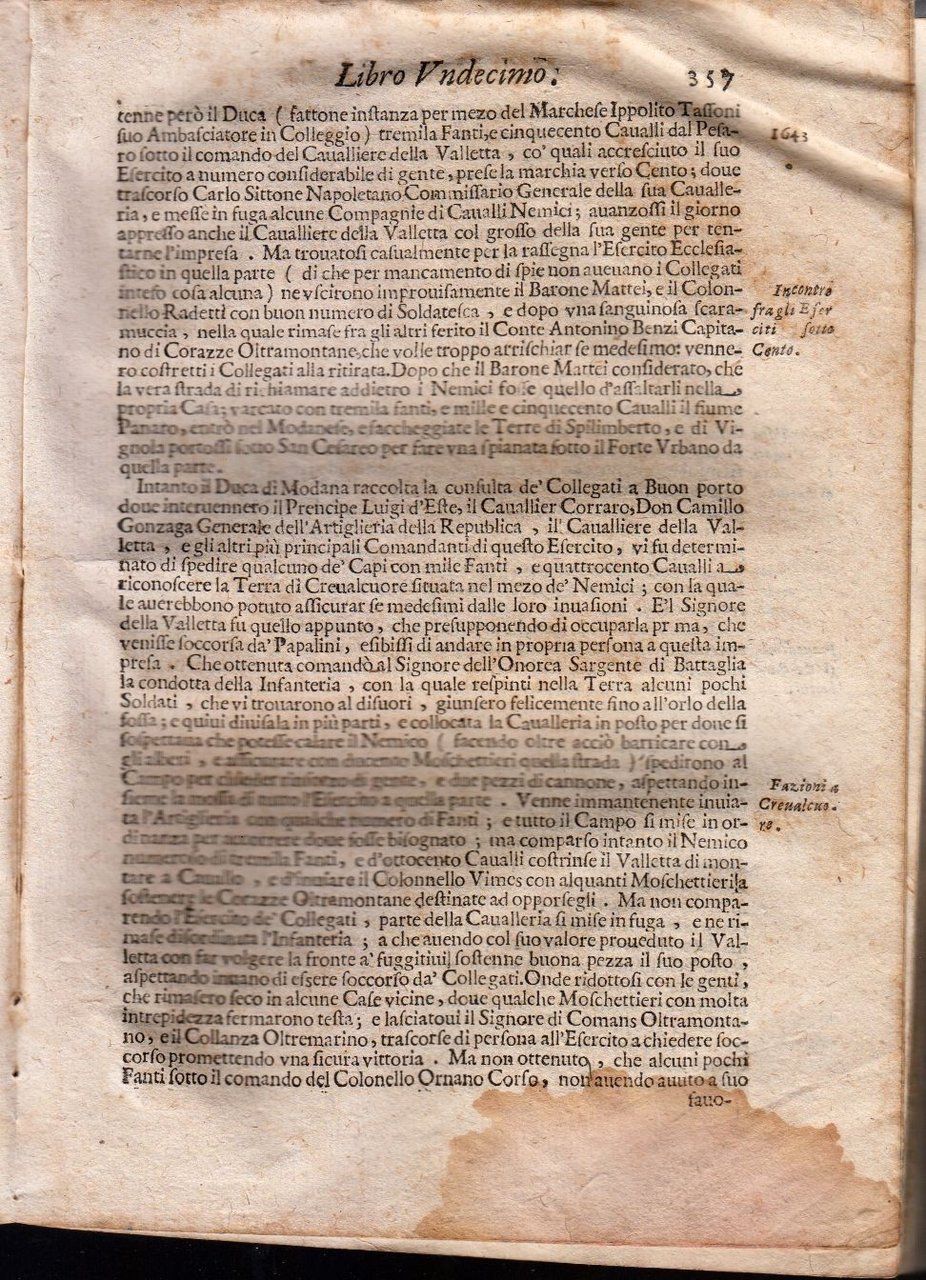 Libro Vndecimo. 357
tenne però il Duca ( fattone instanza per mezo del Marchese Ippolito Tassoni
suo Ambasciatore in Colleggio ) tremila Fanti, e cinquecento Caualli dal Pesa-
ro sotto il comando del Caualliere della Valletta , co' quali accresciuto il suo
Esercito a numero considerabile di gente, prese la marchia verso Cento; doue
trascorso Carlo Sittone Napoletano Commissario Generale della sua Caualle-
ria, e messe in fuga alcune Compagnie di Caualli Nemici; auanzossi il giorno
appresso anche il Caualliere della Valletta col grosso della sua gente per ten-
tarne l'impresa . Ma trouatosi casualmente per la rassegna l'Esercito Ecclesia-
stico in quella parte ( di che per mancamento di spie non aueuano i Collegati
inteso cosa alcuna ) ne vscirono improuisamente il Barone Mattei, e il Colon-
nello Radetti con buon numero di Soldatesca , e dopo vna sanguinosa scara-
muccia , nella quale rimase fra gli altri ferito il Conte Antonino Benzi Capita-
no di Corazze Oltramontane, che volle troppo arrischiar se medesimo: venne-
ro costretti i Collegati alla ritirata. Dopo che il Barone Mattei considerato, che
la vera strada di richiamare addietro i Nemici fosse quello d'assaltarli nella
propria Casa; varcato con tremila fanti, e mille e cinquecento Caualli il fiume
Panaro, entrò nel Modanese, e saccheggiate le Terre di Spilimberto, e di Vi-
gnola portossi sotto San Cesareo per fare vna spianata sotto il Forte Vrbano da
quella parte.
1643
Incontro
fra gli Eser
citi sotto
Cento.
Intanto il Duca di Modana raccolta la consulta de' Collegati a Buon porto
doue interuennero il Prencipe Luigi d'Este, il Cauallier Corraro, Don Camillo
Gonzaga Generale dell'Artiglieria della Republica , il Caualliere della Val-
letta , e gli altri più principali Comandanti di questo Esercito , vi fu determi-
nato di spedire qualcuno de' Capi con mile Fanti , e quattrocento Caualli a
riconoscere la Terra di Creualcuore situata nel mezo de' Nemici ; con la qua-
le auerebbono potuto assicurar se medesimi dalle loro inuasioni . E'l Signore
della Valletta fu quello appunto , che presupponendo di occuparla pr ma, che
venisse soccorsa da' Papalini , esibissi di andare in propria persona a questa im-
presa . Che ottenuta comandò al Signore dell'Onorea Sargente di Battaglia
la condotta della Infanteria , con la quale respinti nella Terra alcuni pochi
Soldati , che vi trouarono al disuori , giunsero felicemente fino all'orlo della
fossa; e quiui diuisala in più parti , e collocata la Caualleria in posto per doue si
sospettaua che potesse calare il Nemico ( facendo oltre acciò barricare con
gli alberi , e assicurare con ducento Moschettieri quella strada ) spedirono al
Campo per chieder rinforzo di gente, e due pezzi di cannone, aspettando in-
sieme la mossa di tutto l'Esercito a quella parte . Venne immantenente inuia-
ta l'Artiglieria con qualche numero di Fanti ; e tutto il Campo si mise in or-
dinanza per accorrere doue fosse bisognato ; ma comparso intanto il Nemico
numeroso di tremila Fanti, e d'ottocento Caualli costrinse il Valletta di mon-
tare a Cauallo , e d'inuiare il Colonnello Vimes con alquanti Moschettieri a
sostenere le Corazze Oltramontane destinate ad opporsegli . Ma non compa-
rendo l'Esercito de' Collegati , parte della Caualleria si mise in fuga , e ne ri-
mase disordinata l'Infanteria ; a che auendo col suo valore proueduto il Val-
letta con far volgere la fronte a' fuggitiui, sostenne buona pezza il suo posto ,
aspettando inuano di essere soccorso da' Collegati. Onde ridottosi con le genti,
che rimasero seco in alcune Case vicine, doue qualche Moschettieri con molta
intrepidezza fermarono testa; e lasciatoui il Signore di Comans Oltramonta-
no, e il Collanza Oltremarino, trascorse di persona all'Esercito a chiedere soc-
corso promettendo vna sicura vittoria . Ma non ottenuto , che alcuni pochi
Fanti sotto il comando del Colonello Ornano Corso, non auendo auuto a suo
fauo-
Fazioni a
Creualcuo-
re.